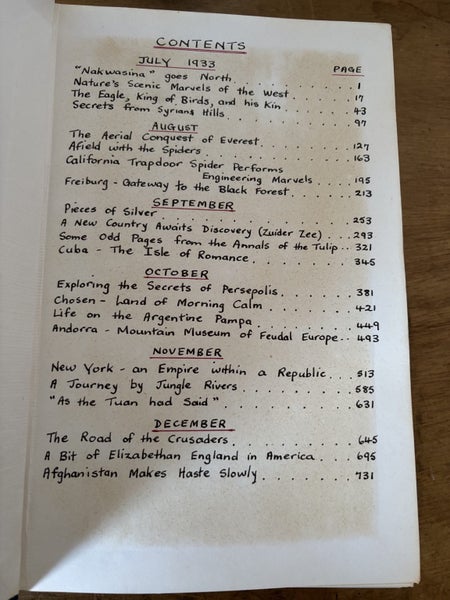 CONTENTS
JULY 1933 PAGE
"Nakwasina" goes North. . . . . . . . . . 1
Nature's Scenic Marvels of the West. . . . . . 17
The Eagle, King of Birds, and his Kin. . . . . . 43
Secrets from Syrians Hills. . . . . . . . . . 97
AUGUST
The Aerial Conquest of Everest. . . . . . . . 127
Afield with the Spiders. . . . . . . . . . 163
California Trapdoor Spider Performs
Engineering Marvels . . . . 195
Freiburg - Gateway to the Black Forest. . . . . 213
SEPTEMBER
Pieces of Silver. . . . . . . . . . . . 253
A New Country Awaits Discovery (Zuider Zee) . . . 293
Some Odd Pages from the Annals of the Tulip . . 321
Cuba - The Isle of Romance. . . . . . . . 345
OCTOBER
Exploring the Secrets of Persepolis. . . . . . 381
Chosen - Land of Morning Calm . . . . . . . 421
Life on the Argentine Pampa. . . . . . . . 449
Andorra - Mountain Museum of Feudal Europe . . 493
NOVEMBER
New York - an Empire within a Republic. . . . 513
A Journey by Jungle Rivers . . . . . . . . 585
"As the Tuan had Said" . . . . . . . . . 631
DECEMBER
The Road of the Crusaders. . . . . . . . . 645
A Bit of Elizabethan England in America. . . . 695
Afghanistan Makes Haste Slowly. . . . . . . 731